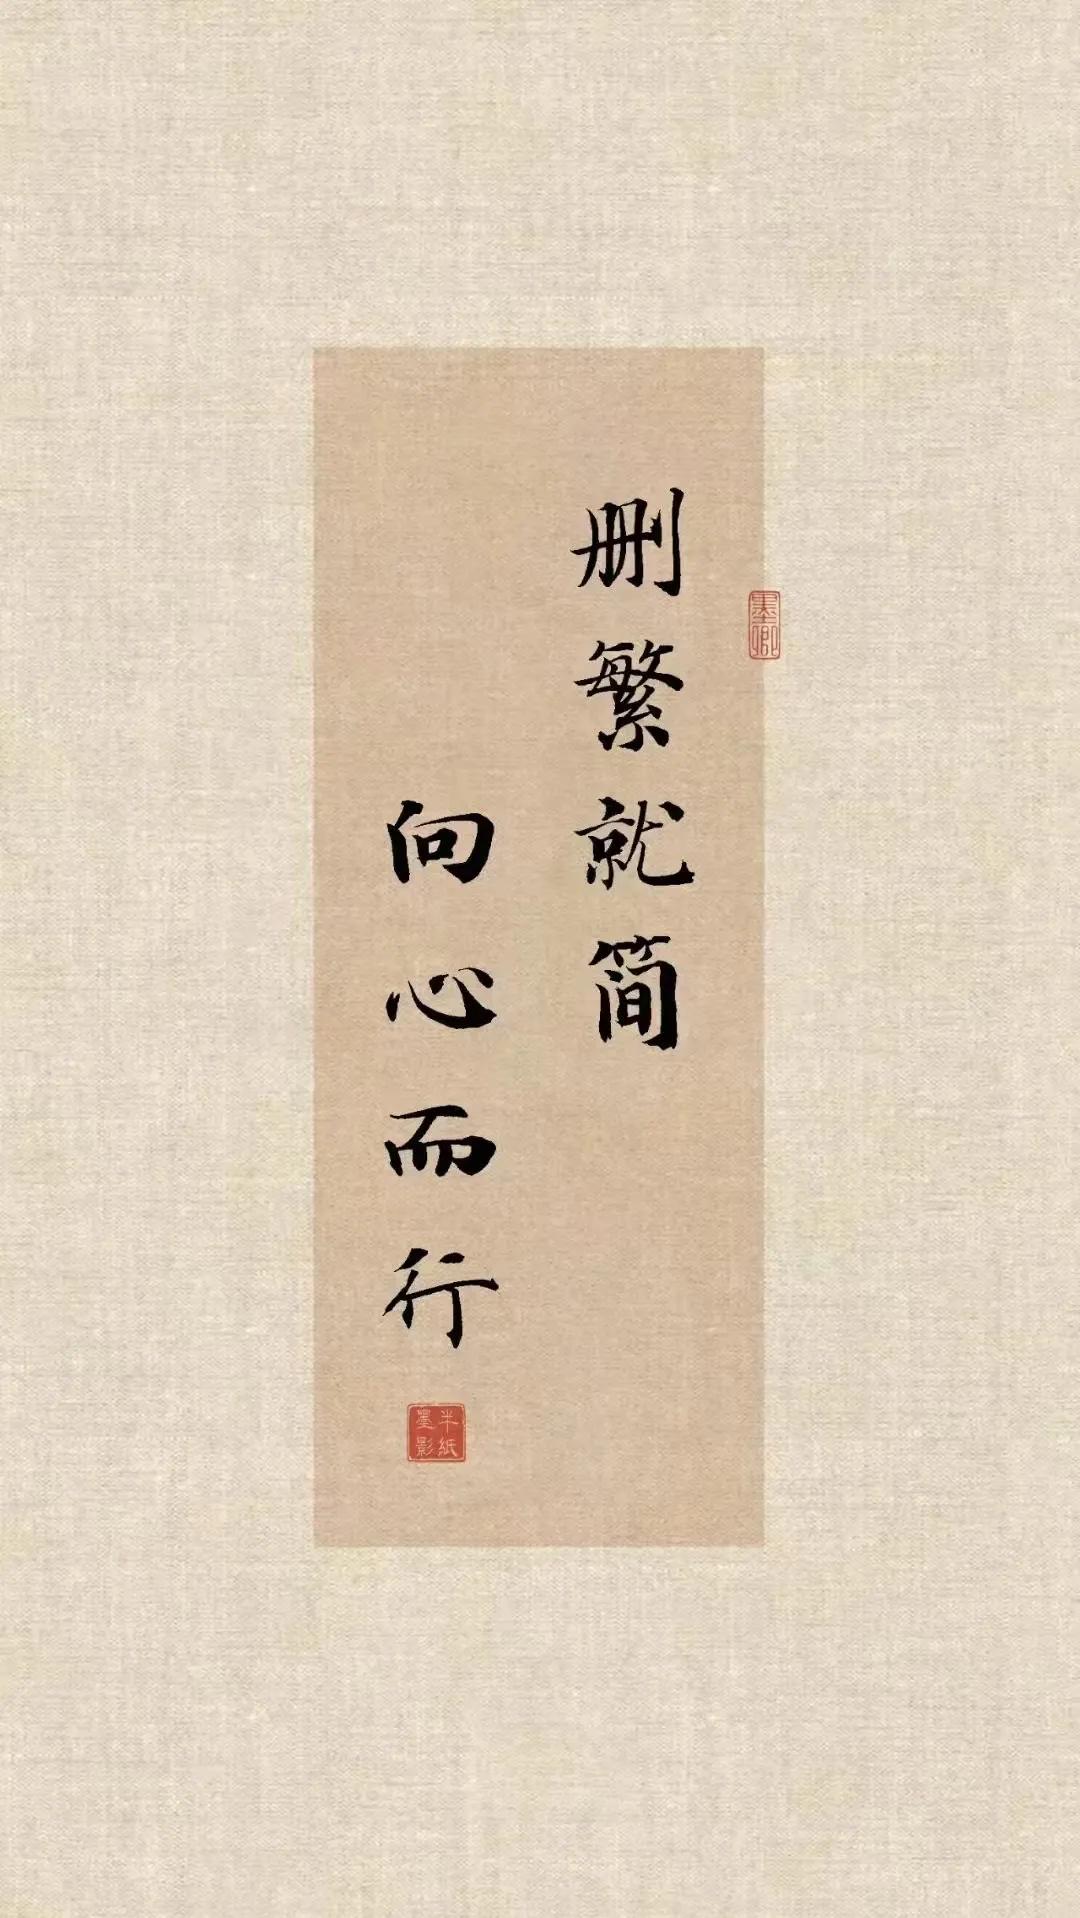 删繁就简
向心而行
墨卿
半纸
墨影